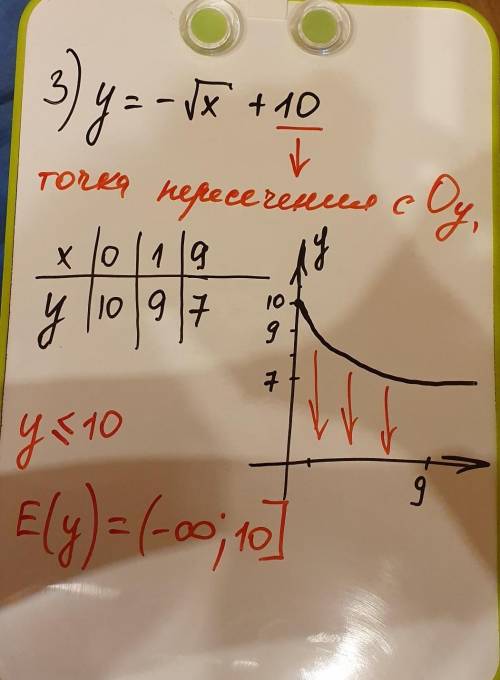 3) y = -√x + 10
точка пересечения с Oy,
x | 0 | 1 | 9
y | 10 | 9 | 7
y
10
9
7
9
y ≤ 10
E(y) = (-∞; 10]